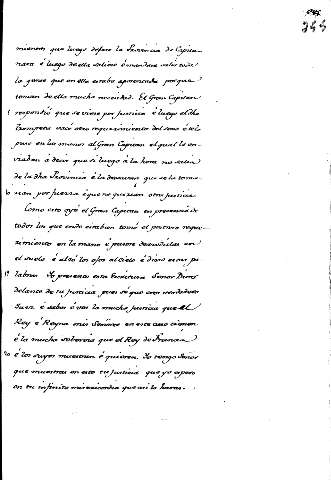 mienen que luego dejase la Provincia de Capita-
nata é luego de ella saliese é mandase salir toda
la gente que en ella estaba aposentada porque
tenian de ella mucha necesidad. El Gran Capitan
respondió que se viese por justicia é luego el dho
Trompeta sacó otro requerimiento del seno é lo
puso en las manos al Gran Capitan el qual le en-
viaban á decir que si luego á la hora no salia
de la dha Provincia é la dexavan que se la toma-
rian por fuerza é que no querian otra justicia
Como esto oyó el Gran Capitan en presencia de
todos los que ende estaban tomó el postrer reque-
rimiento en la mano é puesto de rodillas en
el suelo é alzó los ojos al Cielo é dixo estas pa-
labras. Yo presento esta Escritura Señor Dios
delante de tu justicia pues sé que eres verdadero
Juez, é sabes é ves la mucha justicia que el
Rey é Reyna mis Señores en este caso tienen
é la mucha soberbia que el Rey de Francia
é los suyos muestran é quieren. Yo tengo Señor
que muestres en esto tu justicia que yo espero
en tu infinita misericordia que asi lo haras.